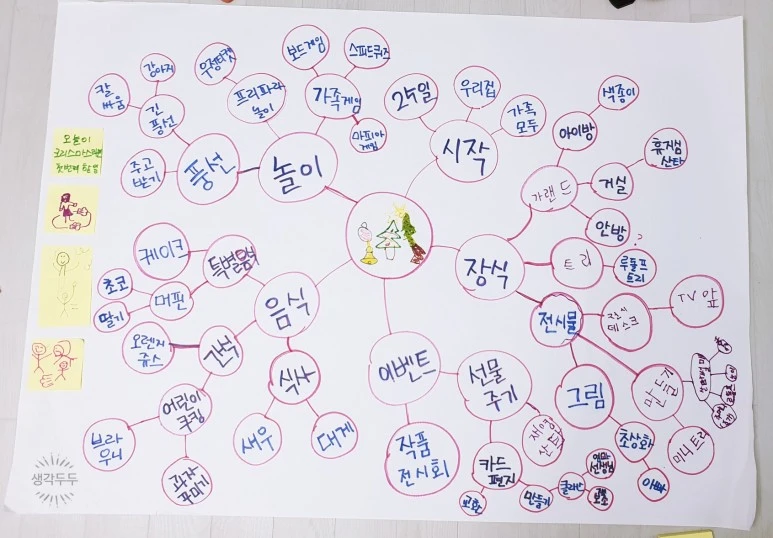 시작
25일
우리집
가족
모두
장식
가랜드
아이방
색종이
거실
휴지심
산타
안방
트리
루돌프
트리
전시물
전시
데스크
TV 앞
만들기
미니트리
그림
초상화
아빠
이벤트
선물
주기
카드
편지
교환
만들기
작품
전시회
음식
식사
새우
대게
간식
오렌지
쥬스
어린이
쿠킹
브라
우니
과자
꾸미기
특별음식
케이크
머핀
초코
딸기
놀이
풍선
긴
풍선
강아지
칼
싸움
주고
받기
프리파라
놀이
우정티켓
가족게임
보드게임
스피드퀴즈
마피아
게임
오늘이
생각두두